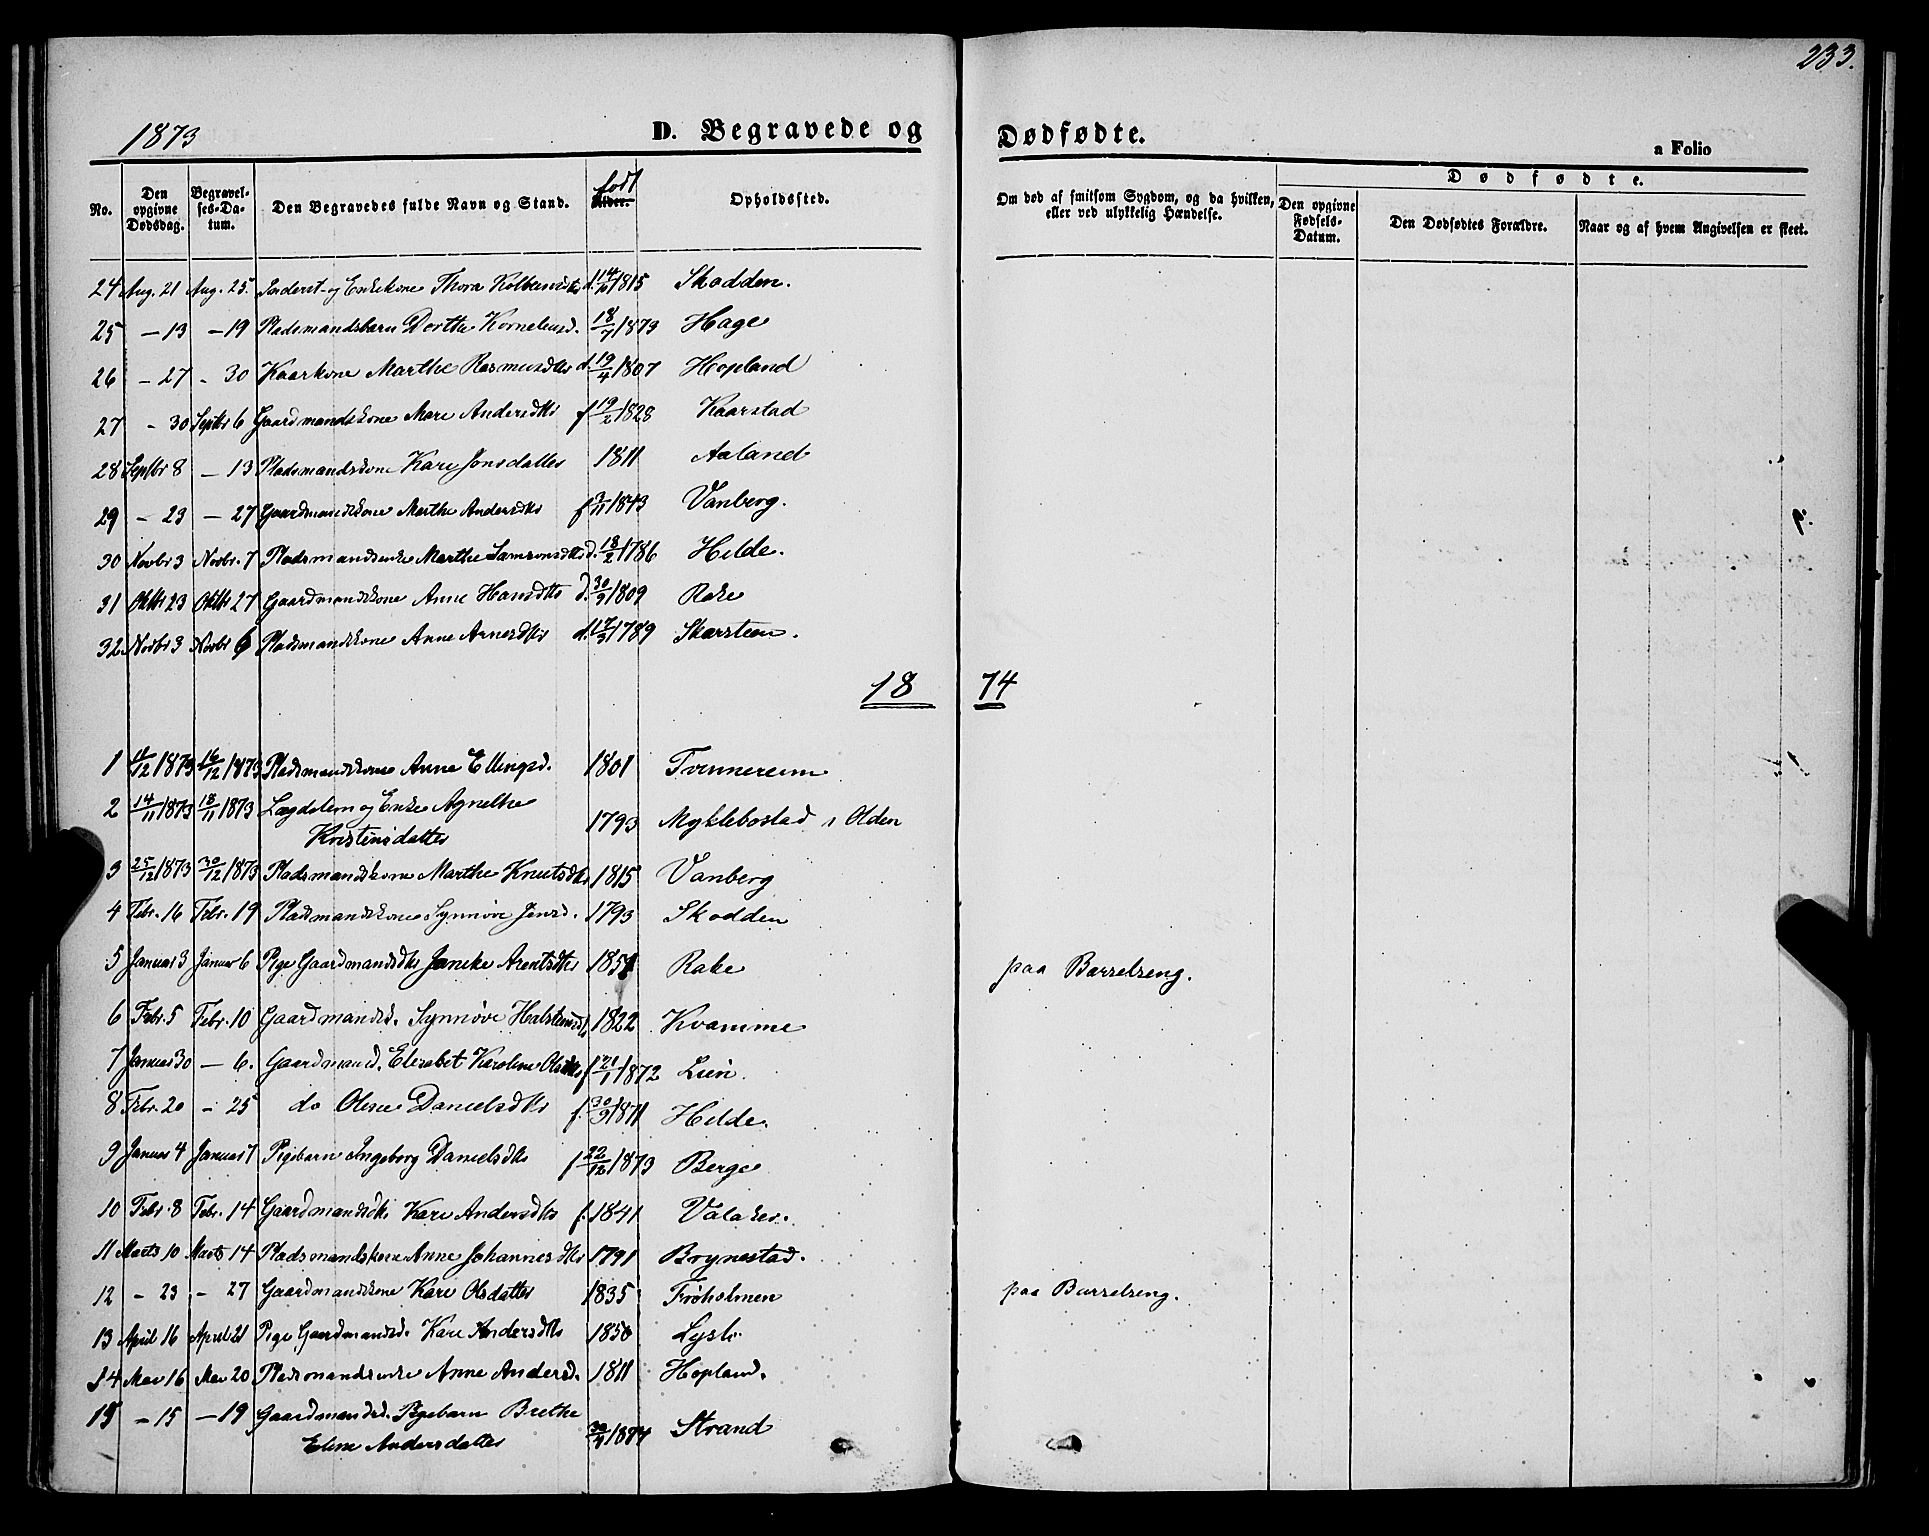 233.
1873
D. Begravede og Dødfødte.
a Folio
No.
Den opgivne Dødsdag.
Begravelses-Datum.
Den Begravedes fulde Navn og Stand.
født
Alder.
Opholdssted.
Om død af smitsom Sygdom, og da hvilken, eller ved ulykkelig Hændelse.
Dødfødte.
Den opgivne Fødsels-Datum.
Den Dødfødtes Forældre.
Naar og af hvem Angivelsen er skeet.
24 Aug. 21 Aug. 25. Inderst- og Enkekone Thora 1815 Skodden.
25 - 13 - 19 Pladsmandsbarn Dorthe Korneliusd. 18/7 1873 Hage
26 - 27 - 30 Kaarkone Marthe Rasmusdtr d. 19/4 1807 Hopland
27 - 30 Septbr 6 Gaardmandskone Mari Andersdtr f 19/2 1828 Kaarstad
28 Septbr 8 - 13 Pladsmandskone Kari Jonsdatter 1811 Aaland
29 - 23 - 27 Gaardmandskone Marthe Andersdtr f 3/11 1843 Vanberg.
30 Novbr 3 Novbr. 7 Pladsmandsenke Marthe Samsonsdtr d. 18/2 1786 Hilde.
31 Oktbr 23 Oktbr 27 Gaardmandskone Anne Hansdtr d. 30/9 1809 Rake
32 Novbr 3 Novbr 6 Pladsmandskone Anne Arnesdtr d. 17/3 1789 Skarsteen.
18 74
1 11/12 1873 16/12 1873 Pladsmandskone Anne Ellingsd. 1801 Tvinnereim
2 14/11 1873 18/11 1873 Lægdslem og Enke Agnethe 1793 Myklebostad i Olden
Kristensdatter
3 25/12 1873 30/12 1873 Pladsmandskone Marthe Knutsdtr 1815 Vanberg
4 Febr. 16 Febr. 19 Pladsmandskone Synnøve Jensd. 1793 Skodden
5 Januar 3 Januar 6 Pige Gaardmandsdtr Janike Arentsdtr 1851 Rake paa Barselseng.
6 Febr. 5 Febr. 10 Gaardmandsd. Synnøve Halsteinsdtr 1822 Kvamme
7 Januar 30 - 6. Gaardmansd. Elisabet Karoline Olsdtr f 21/1 1872 Lien.
8 Febr. 20 - 25 do Oline Danielsdtr f. 30/9 1871 Hilde.
9 Januar 4 Januar 7 Pigebarn Ingeborg Danielsdtr f 22/12 1873 Berge
10 Febr. 8 Febr. 14 Gaardmandsdtr Kari Andersdtr f. 1841 Valaker.
11 Marts 10 Marts 14 Pladsmandskone Anne Johannesdtr 1791 Brynestad.
12 - 23 - 27 Gaardmandskone Kari Olsdatter 1835 Frøholmen paa Barselseng.
13 April 16 April 21 Pige Gaardmandsd. Kari Andersdtr 1850
14 Mai 16 Mai 20 Pladsmandsenke Anne Andersd. 1811 Hopland.
15 - 15 - 19 Gaardmandsd. Pigebarn Brethe 1874 Strand
Eline Andersdatter